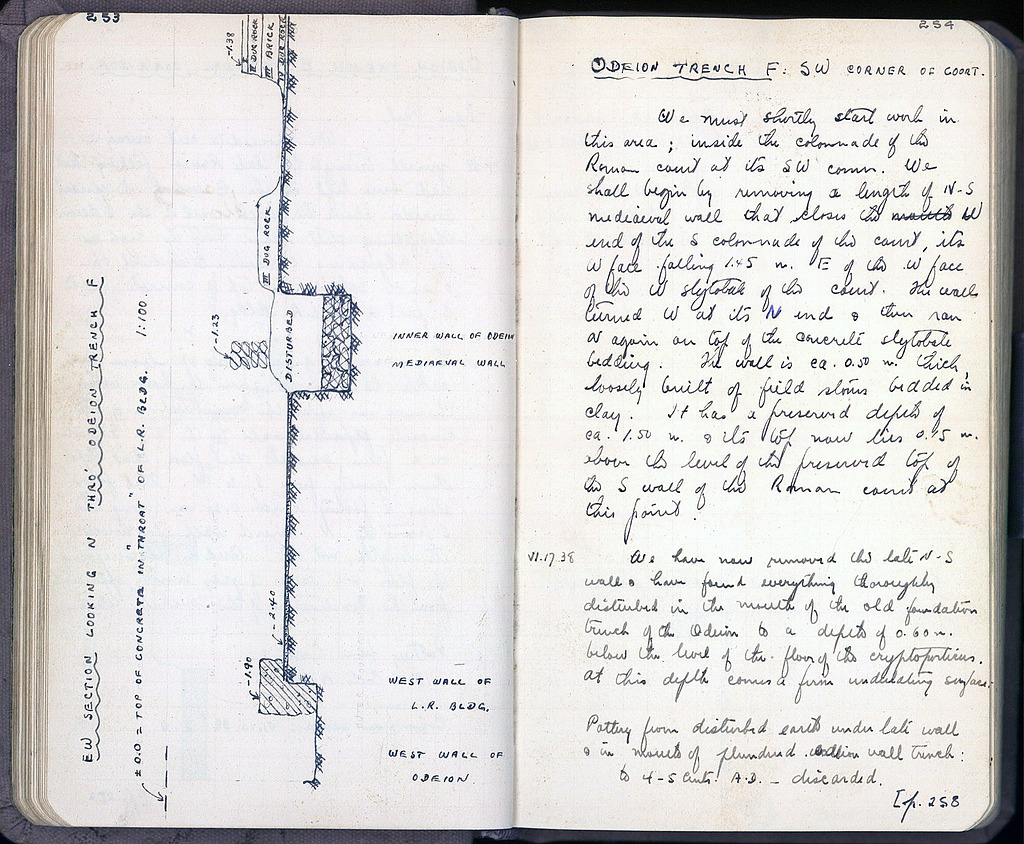 253
EW SECTION LOOKING N THRO' ODEION TRENCH F
± 0.0 = TOP OF CONCRETE IN "THROAT" OF L.R. BLDG. 1:100.
-1.38
II DUG ROCK
III BRICK
IV DUG ROCK
III DUG ROCK
-1.23
DISTURBED
INNER WALL OF ODEION
MEDIAEVAL WALL
-2.40
-1.90
WEST WALL OF
L.R. BLDG.
WEST WALL OF
ODEION
254
ODEION TRENCH F: SW CORNER OF COURT.
We must shortly start work in
this area; inside the colonnade of the
Roman court at its SW corner. We
shall begin by removing a length of N-S
mediaeval wall that closes the mouth W
end of the S colonnade of the court, its
W face falling 1.45 m. E of the W face
of the W stylobate of the court. The wall
turned W at its N end & then ran
N again on top of the concrete stylobate
bedding. The wall is ca. 0.50 m. thick,
loosely built of field stones bedded in
clay. It has a preserved depth of
ca. 1.50 m. & its top now lies 0.75 m.
above the level of the preserved top of
the S wall of the Roman court at
this point.
VI.17.38 We have now removed the late N-S
wall & have found everything thoroughly
disturbed in the mouth of the old foundation
trench of the Odeion to a depth of 0.60 m.
below the level of the floor of the cryptoporticus.
At this depth comes a firm undulating surface.
Pottery from disturbed earth under late wall
& in mouth of plundered Odeion wall trench:
to 4-5 cent. A.D. – discarded.
[p. 258